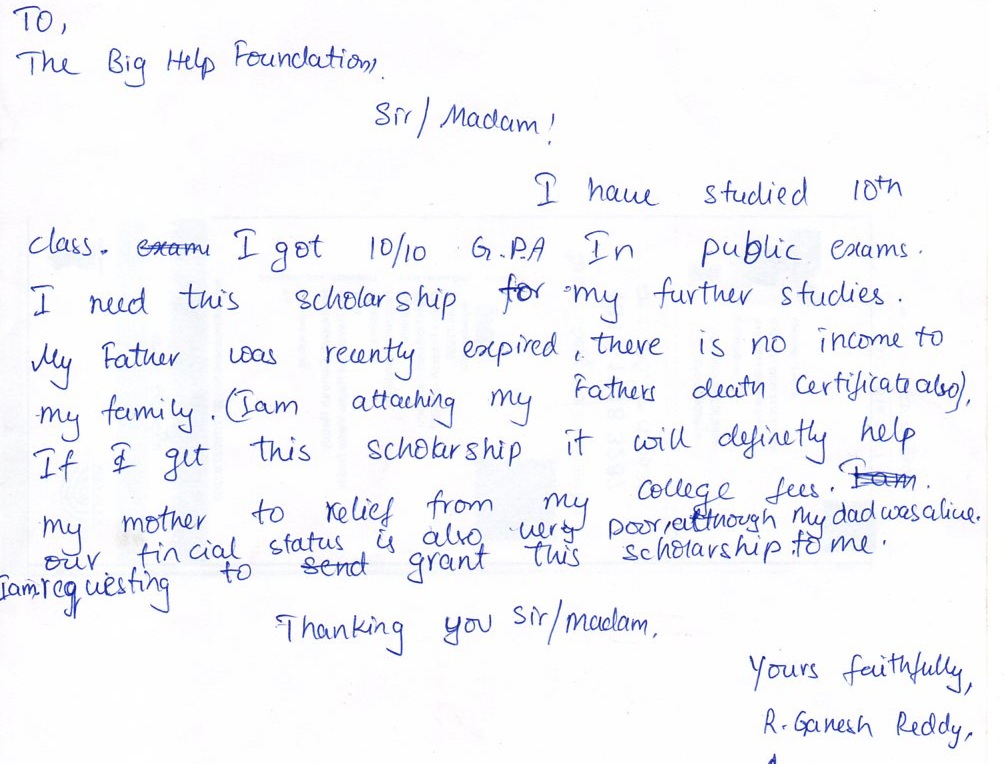 TO,
The Big Help Foundation,
Sir/Madam!
I have studied 10th
class. exam I got 10/10 G.P.A In public exams.
I need this scholarship for my further studies.
My Father was recently expired, there is no income to
my family. (Iam attaching my Fathers death certificate also),
If I get this scholarship it will definetly help
my mother to relief from my college fees. Iam.
our fincial status is also very poor, although My dad was alive.
Iam requesting to send grant this scholarship to me.
Thanking you Sir/madam,
Yours faithfully,
R. Ganesh Reddy,